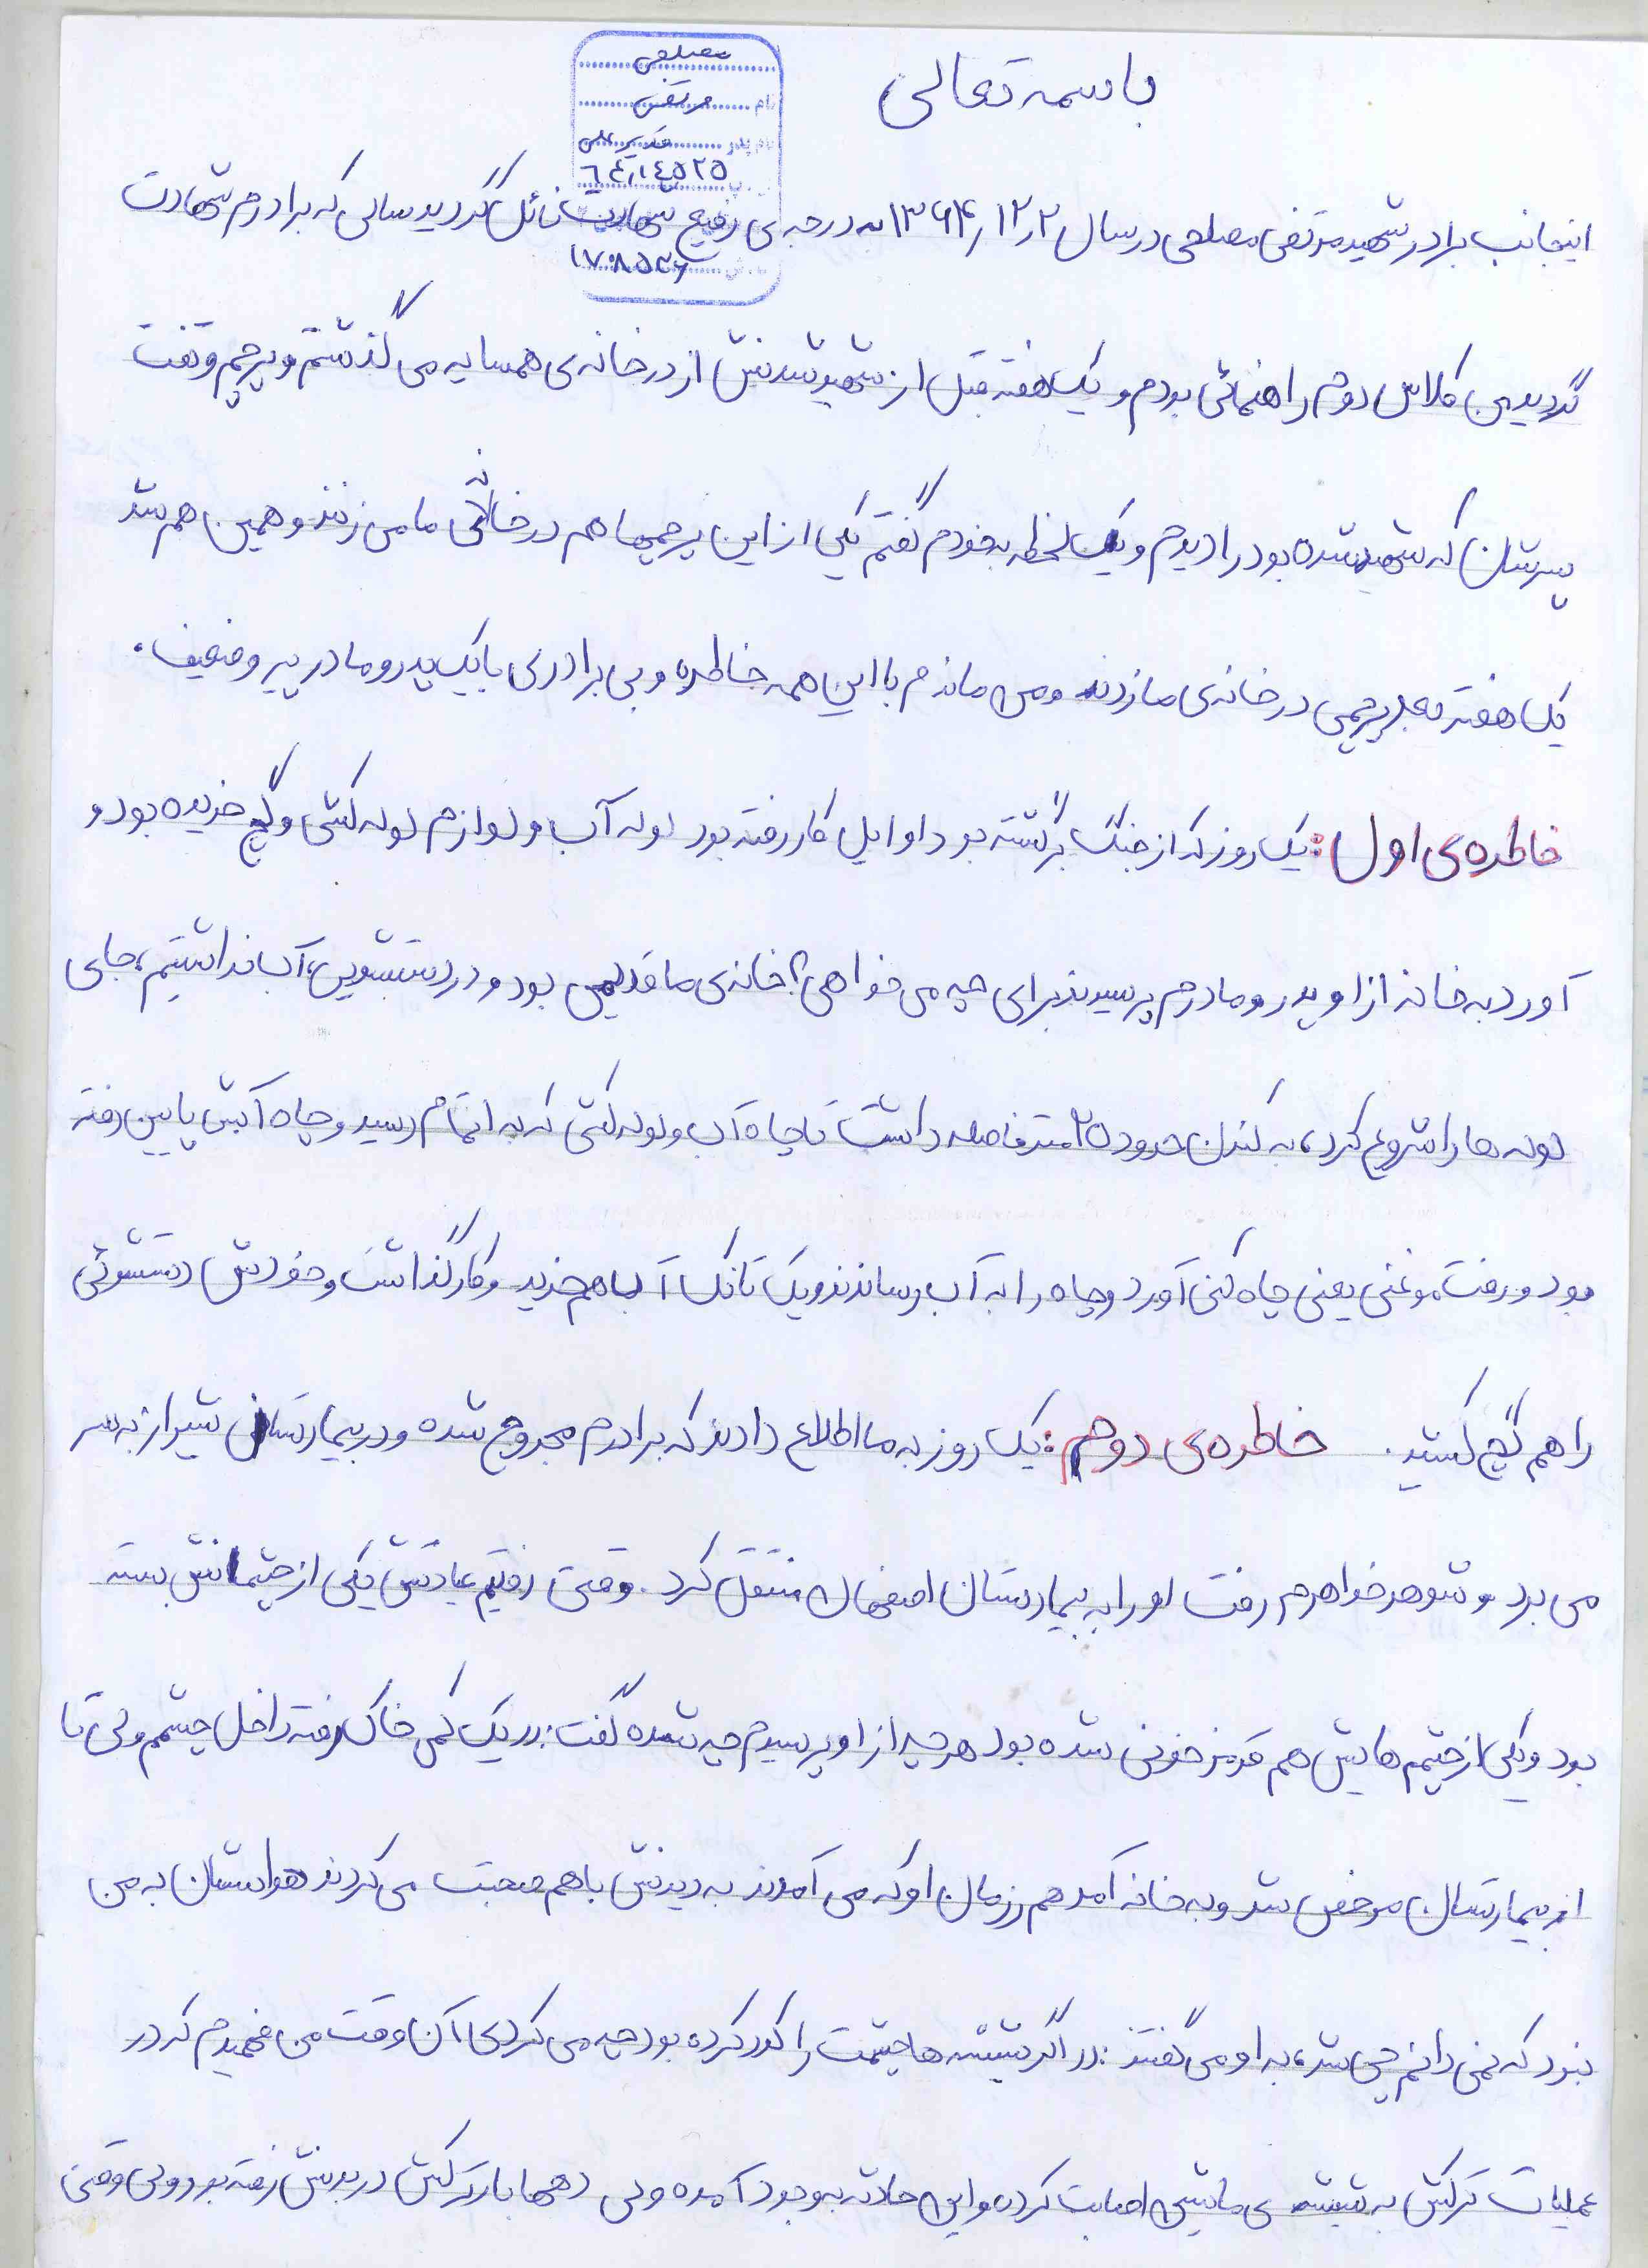 باسمه تعالی
مصلحی
نام مرتضی
نام پدر قدیرعلی
٦٤١٤٥٢٥
١٧٠٨٥٢۶
اینجانب برادر شهید مرتضی مصلحی در سال ۱۳۶۴٫۱۲٫۲ به درجه ی رفیع شهادت نائل گردید سالی که برادرم شهادت
گردید من کلاس دوم راهنمائی بودم و یک هفته قبل از شهید شدنش از در خانه ی همسایه می گذشتم و پرچم وقتت
پسرشان که شهید شده بود را دیدم و یک لحظه به خودم گفتم یکی از این پرچمها هم در خانه ی ما می زنند و همین هم شد
یک هفته بعد پرچمی در خانه ی ما زدند و من ماندم با این همه خاطره و بی برادری با یک پدر و مادر پیر و ضعیف.
خاطره ی اول: یک روز که از جنگ برگشته بود اوایل کار رفته بود لوله آب و لوازم لوله کشی و گچ خریده بود و
آورد به خانه از او پدر و مادرم پرسیدند برای چه می خواهی؟ خانه ی ما قدیمی بود و در دستشویی، آب نداشتیم، جای
لوله ها را شروع کرد، به کندن حدود ۲۵ متر فاصله داشت تا چاه آب و لوله کشی که به اتمام رسید و چاه آبش پایین رفته
بود و رفت موغنی یعنی چاه کنی آورد و چاه را به آب رساندند و یک تانک آب هم خرید و کار گذاشت و خودش دستشوئی
را هم گچ کشید. خاطره ی دوم: یک روز به ما اطلاع دادند که برادرم مجروح شده و در بیمارستان شیراز به سر
می برد و شوهر خواهرم رفت او را به بیمارستان اصفهان منتقل کرد. وقتی رفتیم عیادتش یکی از چشمانش بسته
بود و یکی از چشم هایش هم قرمز خونی شده بود هر چه از او پرسیدم چه شده گفت: در یک کمی خاک رفته داخل چشمم ولی تا
از بیمارستان مرخص شد و به خانه آمد هم رزمان او که می آمدند به دیدنش با هم صحبت می کردند هواسشان به من
نبود که نمی دانم چی شد، به او می گفتند: در اگر شیشه ها چشمت را کور کرده بود چه می کردی آن وقت من فهمیدم که در
عملیات ترکش به شیشه ی ماشین اصابت کرده و این حادثه به وجود آمده ولی دهها بار ترکش در بدنش رفته بود ولی وقتی